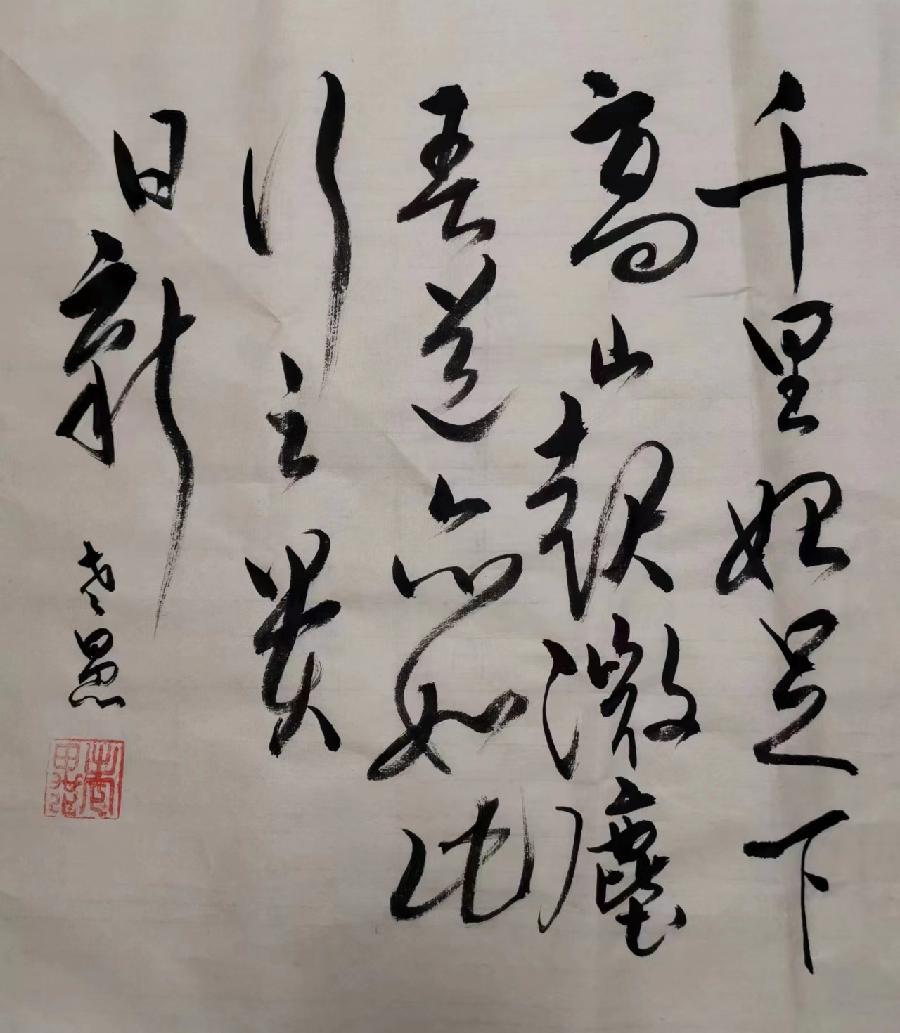 千里始足下
高山起微塵
吾道亦如此
行之貴
日新
老愚